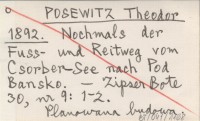 POSEWITZ Theodor
1892. Nochmals der
Fuss- und Reitweg vom
Csorber-See nach Pod
Bansko. — Zipser Bote
30, nr 9: 1-2.
Planowana budowa.